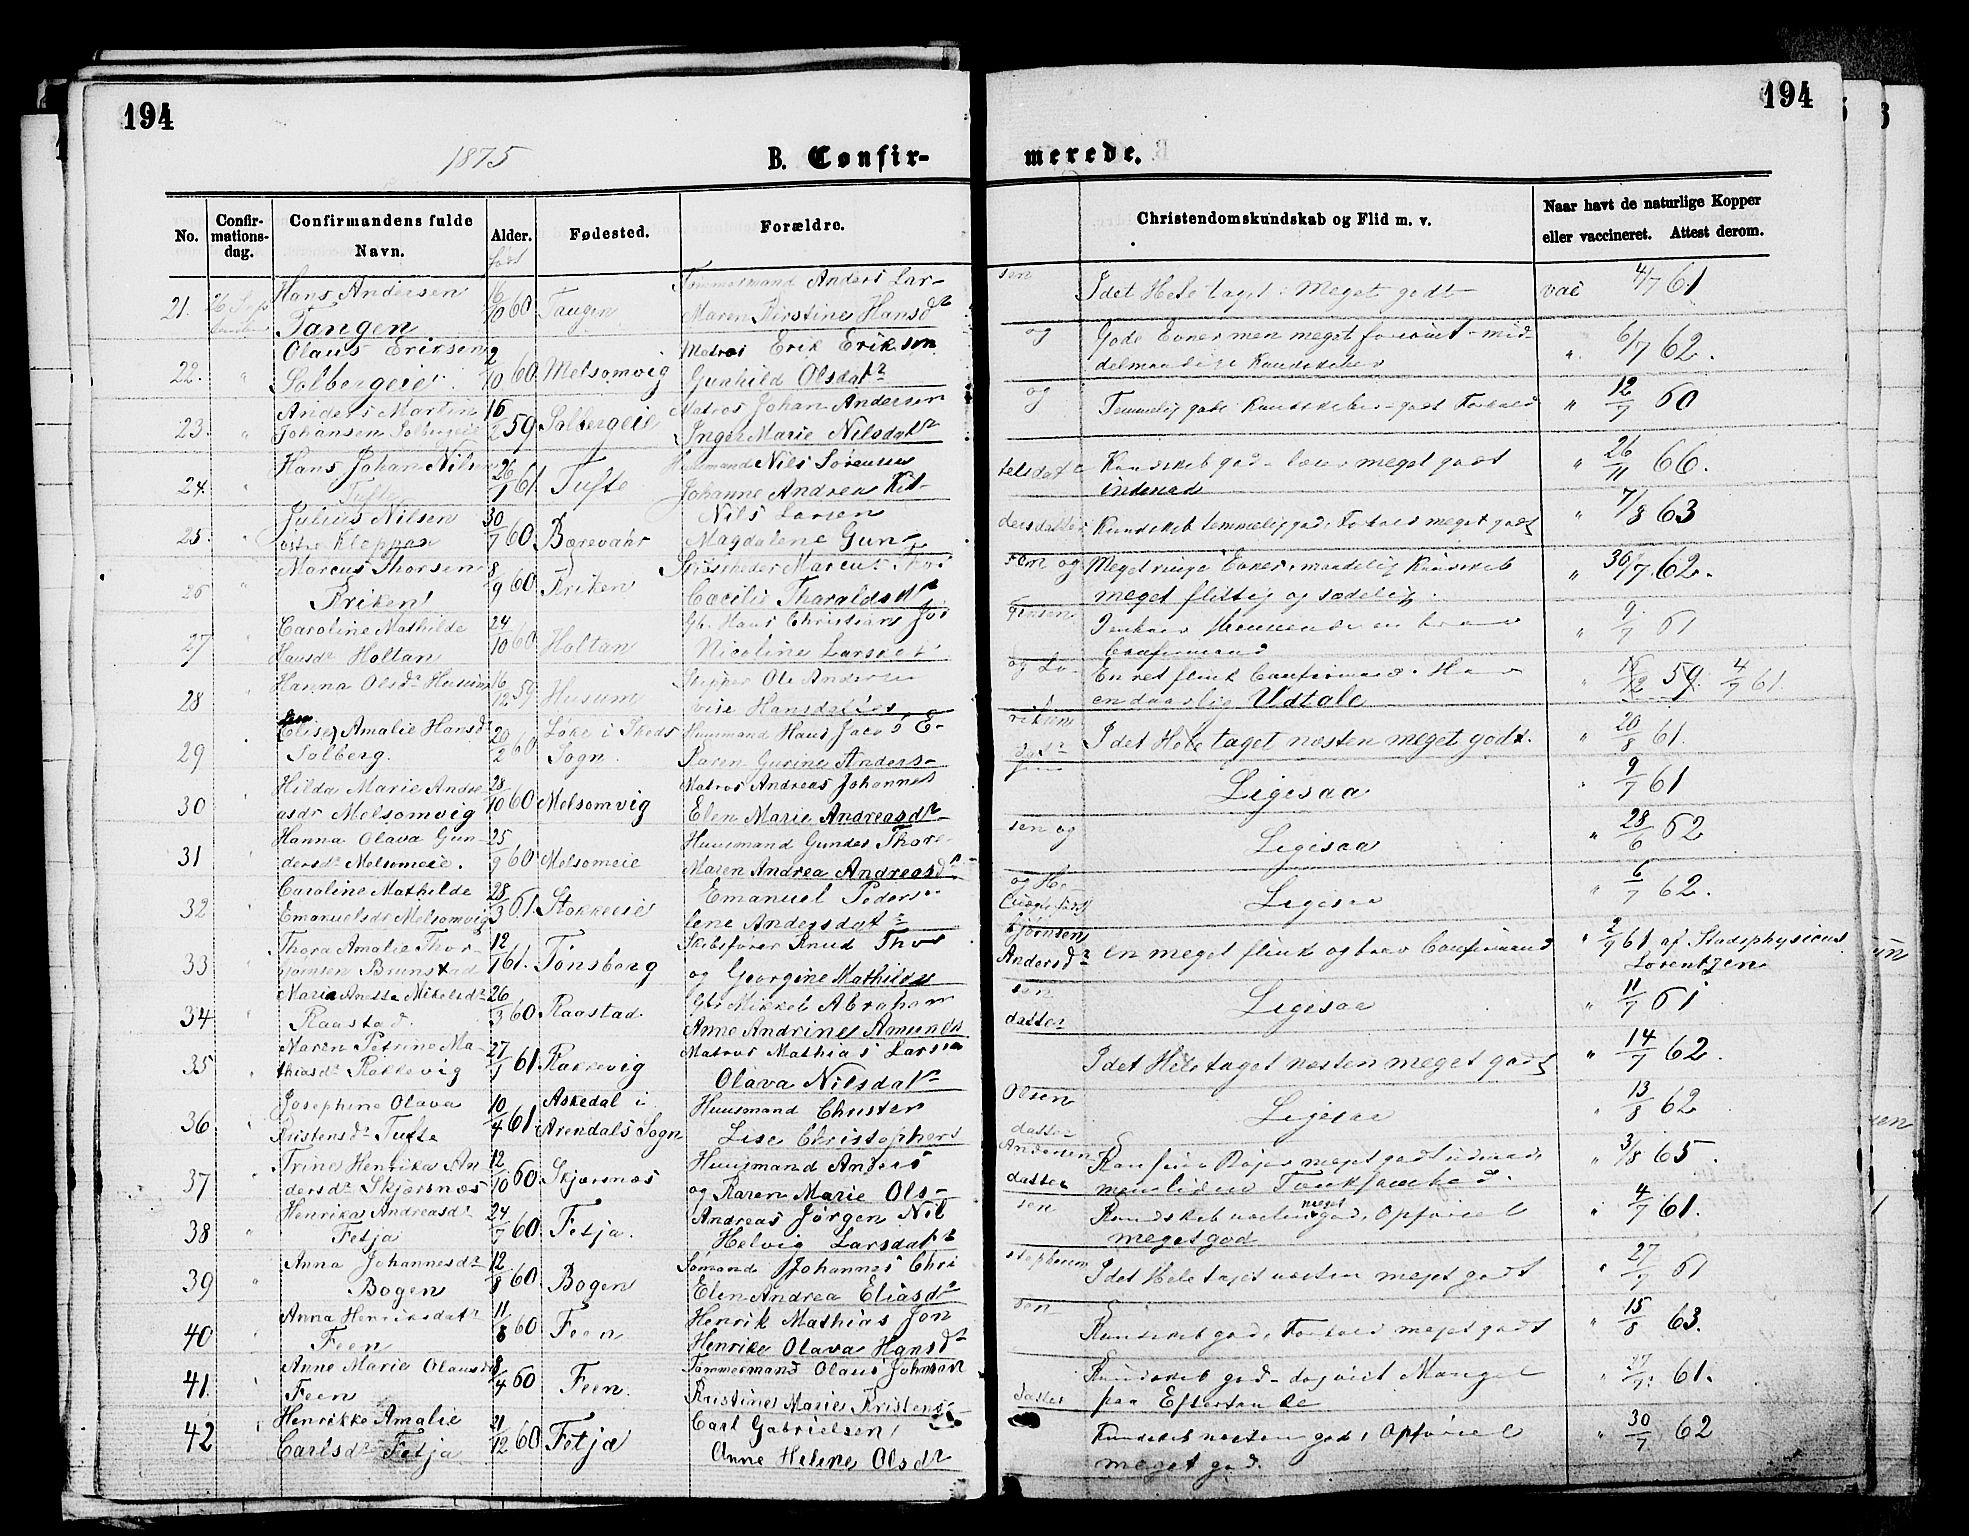 194
194
1875
B. Confir-
merede.
No.
Confir-
mations-
dag.
Confirmandens fulde
Navn.
Alder.
født
Fødested.
Forældre.
Christendomskundskab og Flid m. v.
Naar havt de naturlige Kopper
eller vaccineret. Attest derom.
21. 26 Sept Hans Andersen 16/10 60 Tangen Tømmermand Anders Lar- sen I det Hele taget: Meget godt vac 4/7 61
Tangen Maren Kirstine Hansdr
22. " Olaus Eriksen 2/10 60 Melsomvig Matros Erik Eriksen og Gode Evner men meget forsømt - mid- " 6/7 62.
Solbergeie. Gunhild Olsdatr delmaadige Kundskaber
23. " Anders Martin 16/2 59 Solbergeie Matros Johan Andersen og Temmelig gode Kundskaber - godt Forhold " 12/7 60
Johansen Solbergeie Inger Marie Nilsdatr
24. " Hans Johan Nilsen 26/1 61. Tufte Huusmand Nils Sørensen Kundskab god - læser meget godt " 26/11 66.
Tufte Johanne Andrea Ket- telsdatr indenad
25. " Julius Nilsen 30/7 60 Bærevahr Nils Larsen " 7/8 63
Kleppan Magdalene Gun- dersdatter Kundskab temmelig god, Forhold meget godt
26 " Marcus Thorsen 8/9 60 Kriken Marcus Thor sen og Meget ringe Evner, maadelig Kundskab " 30/7 62.
Kriken Cæcilie Tharaldsdr meget flittig og sædelig.
27 " Caroline Mathilde 24/10 60 Holtan Gb. Hans Christian Jør gensen " 9/7 61
Hansdr Holtan Nicoline Larsdatr Confirmand
28 " Hanna Olsdr Husum 16/12 59 Husum Skipper Ole Andersen og Lo- En ret flink Confirmand. Har " 16/12 59. 4/7 61.
vise Hansdatter en daarlig Udtale
29 " (Elise) Amalie Hansdr 20/2 60 Løke i Skeds Huusmand Hans Jacob E- riksen I det Hele taget næsten meget godt. " 20/8 61.
Solberg. Sogn. Karen Gurine Anders- datr
30 " Hilda Marie Andre 28/10 60 Melsomvig Matros Andreas Johannes Ligesaa " 9/7 61
asdr Melsomvig Elen Marie Andreasdr
31 " Hanna Olava Gun- 25/9 60 Melsomeie Huusmand Gunder Thor- sen og Ligesaa " 28/6 62
dersdr Melsomeie. Maren Andrea Andreasdr
32 " Caroline Mathilde 28/3 61. Stokkeeie Emanuel Peders og He- Ligesaa " 6/7 62.
Emanuelsdr Melsomvig lene Andersdatr
33 " Thora Amalie Thor- 12/1 61. Tønsberg Skibsfører Knud Thor bjørnsen en meget flink og brav Confirmand " 2/9 61 af Stadsphysicus
bjørnsen Brunstad og Georgine Mathilde Andersdr Lorentzen
34 " Maria Anette Mikelsdr 26/3 60 Raastad. Gbr Mikkel Abraham sen Ligesaa " 11/7 61
Raastad. Anne Andrine Amunds datter
35 " Maren Petrine Ma- 27/1 61 Rakkevig Matros Mathias Larsen I det Hele taget næsten meget godt " 14/7 62.
thiasdr Rakkevig Olava Nilsdatr
36 " Josephine Olava 10/4 61. Askedal i Huusmand Christen Olsen Ligesaa " 13/8 62
Kristensdr Tufte Arendals Sogn Lise Christophers datter
37 " Trine Henrika An 12/10 60 Skjærsnæs Huusmand Anders Andersen " 3/8 65.
dersdr Skjærsnæs og Karen Marie Ols- datter
38 " Henrika Andreasdr 24/7 60 Fetja. Andreas Jørgen Nil sen Kundskab næsten meget god, Opførsel " 4/7 61.
Fetja Helvig Larsdatr meget god
39 " Anna Johannesdr 12/8 60 Bogen Sømand Johannes Chri stophersen I det Hele taget næsten meget godt " 27/7 61
Bogen Elen Andrea Eliasdr
40 " Anna Henriksdatr 11/8 60 Feen Henrik Mathias Jon sen Kundskab god, Forhold meget godt " 15/8 63.
Feen Henrike Olava Hansdr
41. " Anne Marie Olausdr 8/4 60 Feen. Tømmermand Olaus Johnsen Kundskab god - dog vist Mangel " 27/7 61.
Feen Kristine Marie Kristens- datter paa Eftertanke
42 " Henrikke Amalie 21/12 60 Fetja Carl Gabrielsen Kundskab næsten god, Opførsel " 30/7 62
Carlsdr Fetja Anne Helene Olsdr meget god.